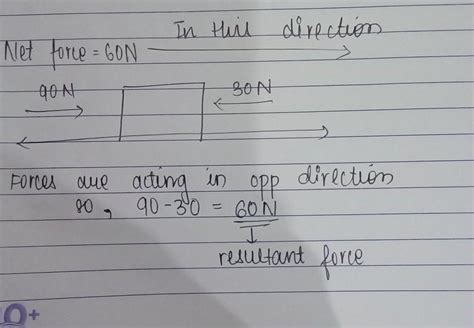 In this direction
Net force = 60N
90N
30N
Forces are acting in opp direction
so, 90-30 = 60N
resultant force